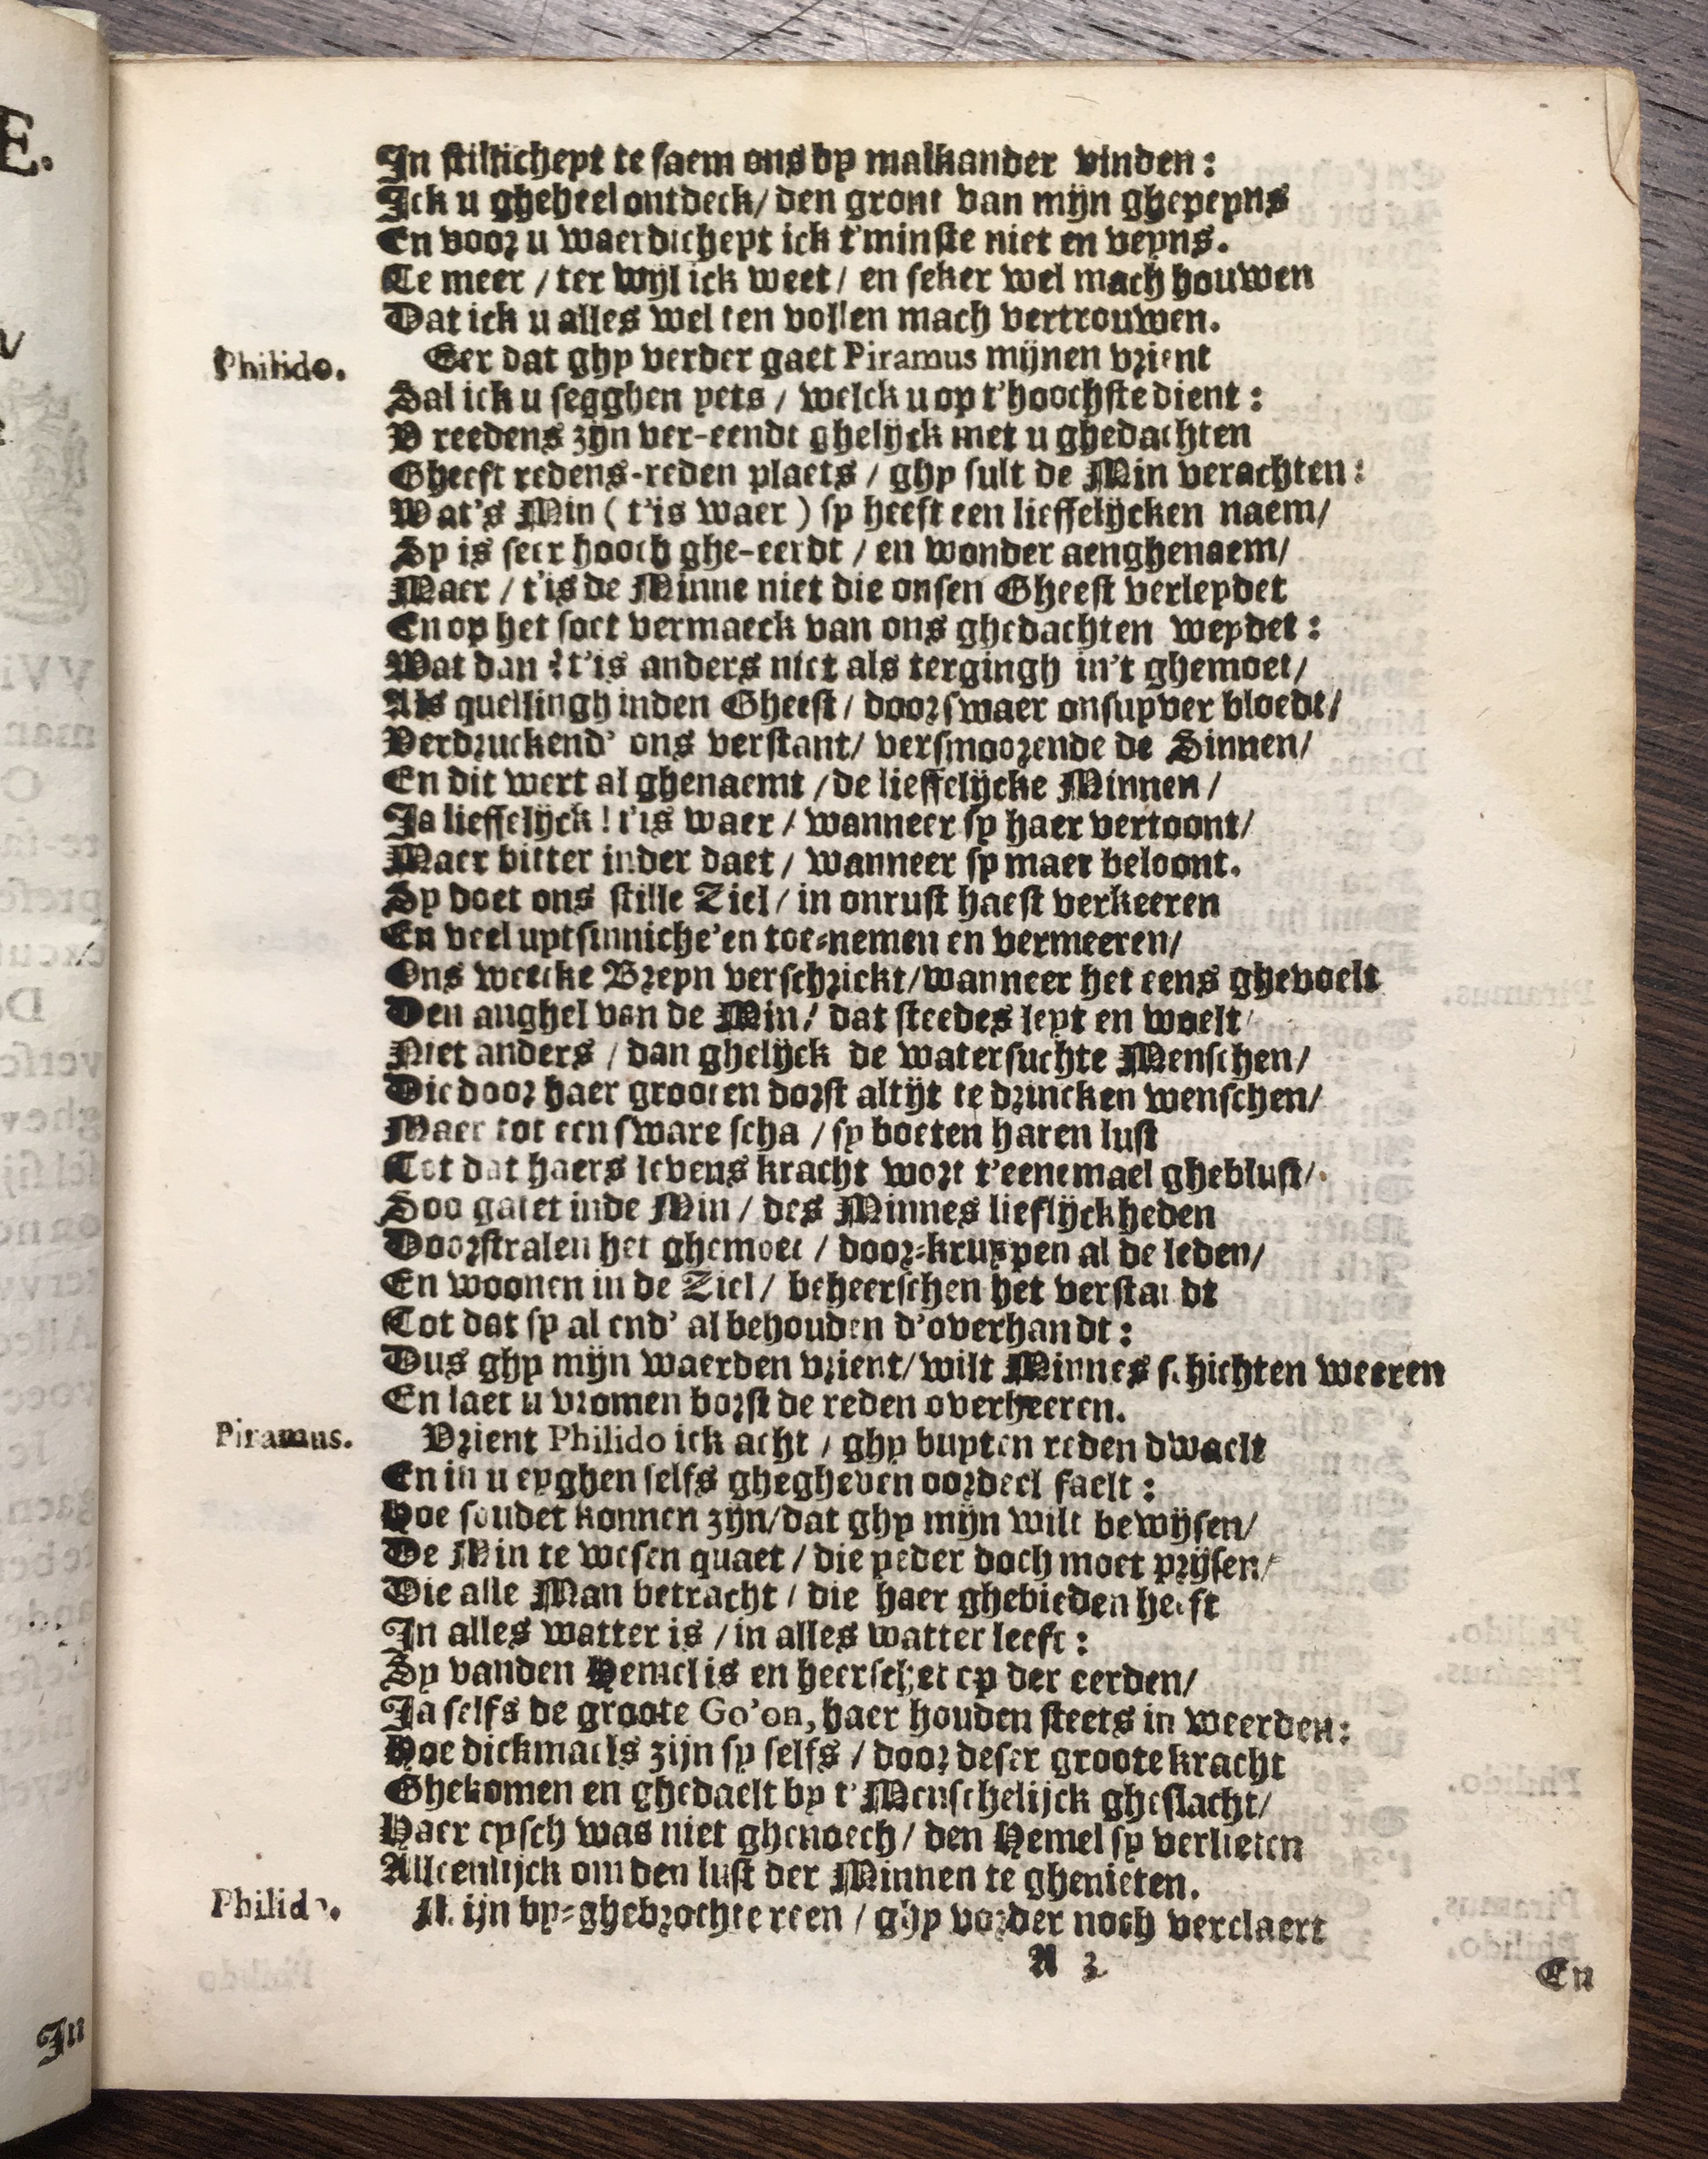 In stilticheyt te saem ons by malkander vinden:
Ick u gheheel ontdeck/ den gront van mijn ghepeyns
En voor u waerdicheyt ick t'minste niet en veyns.
Te meer / ter wijl ick weet / en seker wel mach houwen
Dat ick u alles wel ten vollen mach vertrouwen.
Philido. Eer dat ghy verder gaet Piramus mijnen vrient
Sal ick u segghen yets / welck u op t'hoochste dient:
V reedens zijn ver-eendt ghelijck met u ghedachten
Gheeft redens-reden plaets / ghy sult de Min verachten:
Wat's Min ( t'is waer ) sy heeft een lieffelijcken naem/
Sy is seer hooch ghe-eerdt / en wonder aenghenaem/
Maer / t'is de Minne niet die onsen Gheest verleydet
En op het soet vermaeck van ons ghedachten weydet:
Wat dan? t'is anders niet als tergingh in't ghemoet/
Als quellingh inden Gheest / door swaer onsuyver bloedt/
Verdruckend' ons verstant/ versmoorende de Sinnen/
En dit wert al ghenaemt / de lieffelijcke Minnen/
Ja lieffelijck! t'is waer / wanneer sy haer vertoont/
Maer bitter inder daet / wanneer sy maer beloont.
Sy doet ons stille Ziel / in onrust haest verkeeren
En veel uytsinniche'en toe-nemen en vermeeren/
Ons weecke Breyn verschrickt/wanneer het eens ghevoelt
Den anghel van de Min/ dat steedes leyt en woelt/
Niet anders / dan ghelijck de watersuchte Menschen/
Die door haer grooten dorst altijt te drincken wenschen/
Maer tot een sware scha / sy boeten haren lust
Tot dat haers levens kracht wort t'eenemael gheblust/
Soo gaet et inde Min / des Minnes lieflijckheden
Doorstralen het ghemoet / door-kruypen al de leden/
En woonen in de Ziel / beheerschen het verstandt
Tot dat sy al end' al behouden d'overhandt:
Dus ghy mijn waerden vrient/wilt Minnes schichten weeren
En laet u vromen borst de reden overheeren.
Piramus. Vrient Philido ick acht / ghy buyten reden dwaelt
En in u eyghen selfs ghegheven oordeel faelt:
Hoe soudet konnen zijn/dat ghy mijn wilt bewijsen/
De Min te wesen quaet / die yeder doch moet prijsen/
Die alle Man betracht / die haer ghebieden heeft
In alles watter is / in alles watter leeft:
Sy vanden Hemel is en heerschet op der eerden/
Ja selfs de groote Go'on, haer houden steets in weerden:
Hoe dickmaels zijn sy selfs / door deser groote kracht
Ghekomen en ghedaelt by t'Menschelijck gheslacht/
Haer eysch was niet ghenoech / den Hemel sy verlieten
Alleenlijck om den lust der Minnen te ghenieten.
Philido. Mijn by-ghebrochte reen / ghy vorder noch verclaert
A 3
En
In